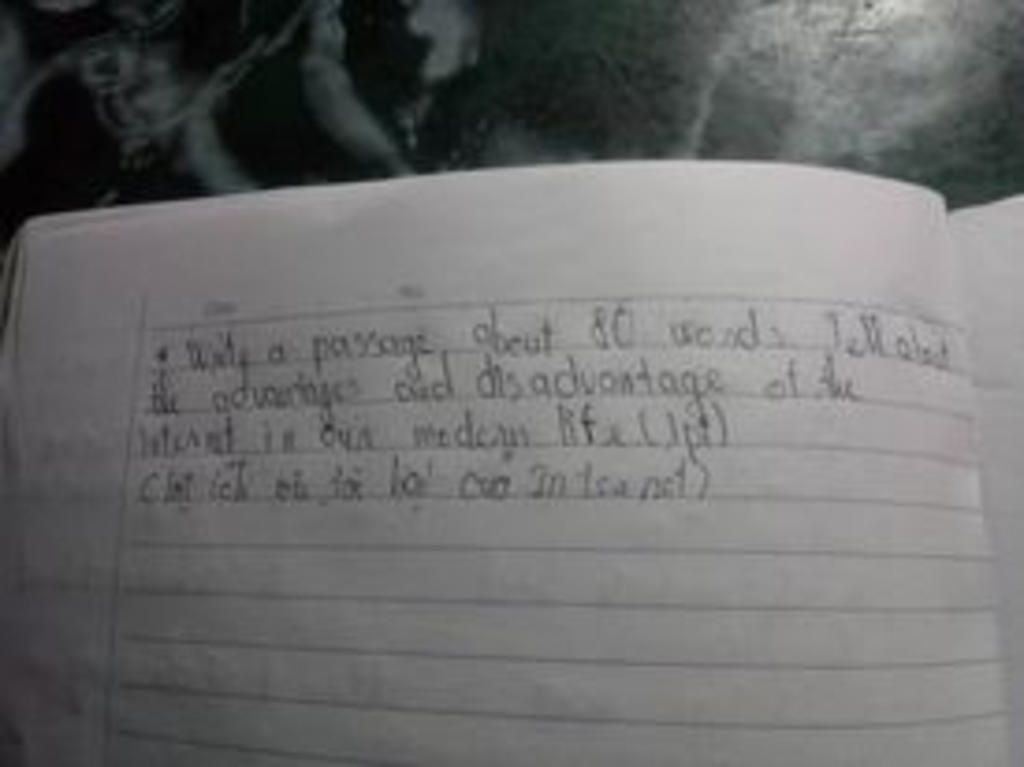 * Write a passage about 80 words. Tell about
the advantages and disadvantage of the
internet in our modern life (1pt)
(lợi ích và tác hại của Internet)